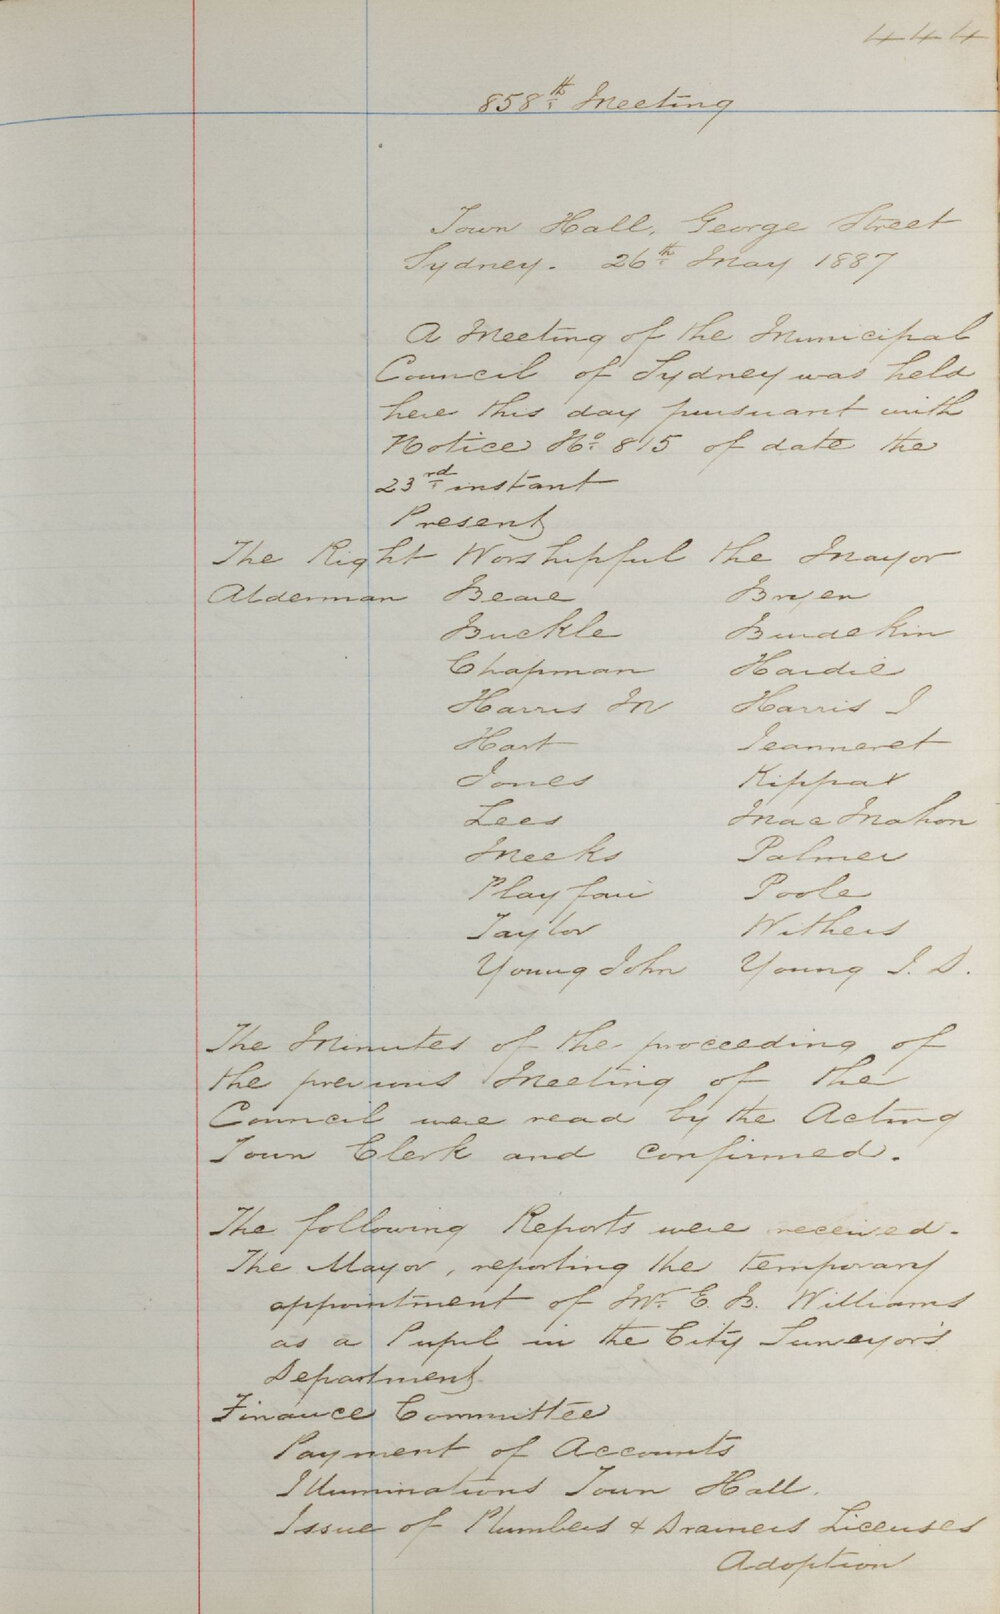 444
858th Meeting
Town Hall, George Street
Sydney. 26th May 1887
A Meeting of the Municipal
Council of Sydney was held
here this day pursuant with
Notice No. 815 of date the
23rd instant
Present
The Right Worshipful the Mayor
Alderman Beare Bryen
Buckle Burdekin
Chapman Hardie
Harris M Harris J
Hart Jeanneret
Jones Kippax
Lees MacMahon
Meeks Palmer
Playfair Poole
Taylor Withers
Young John Young J. D.
The Minutes of the proceeding of
the previous Meeting of the
Council were read by the Acting
Town Clerk and confirmed.
The following Reports were received.
The Mayor, reporting the temporary
appointment of Mr. E. B. Williams
as a Pupil in the City Surveyor's
Department
Finance Committee
Payment of Accounts
Illuminations Town Hall.
Issue of Plumbers & Drainers Licenses
Adoption